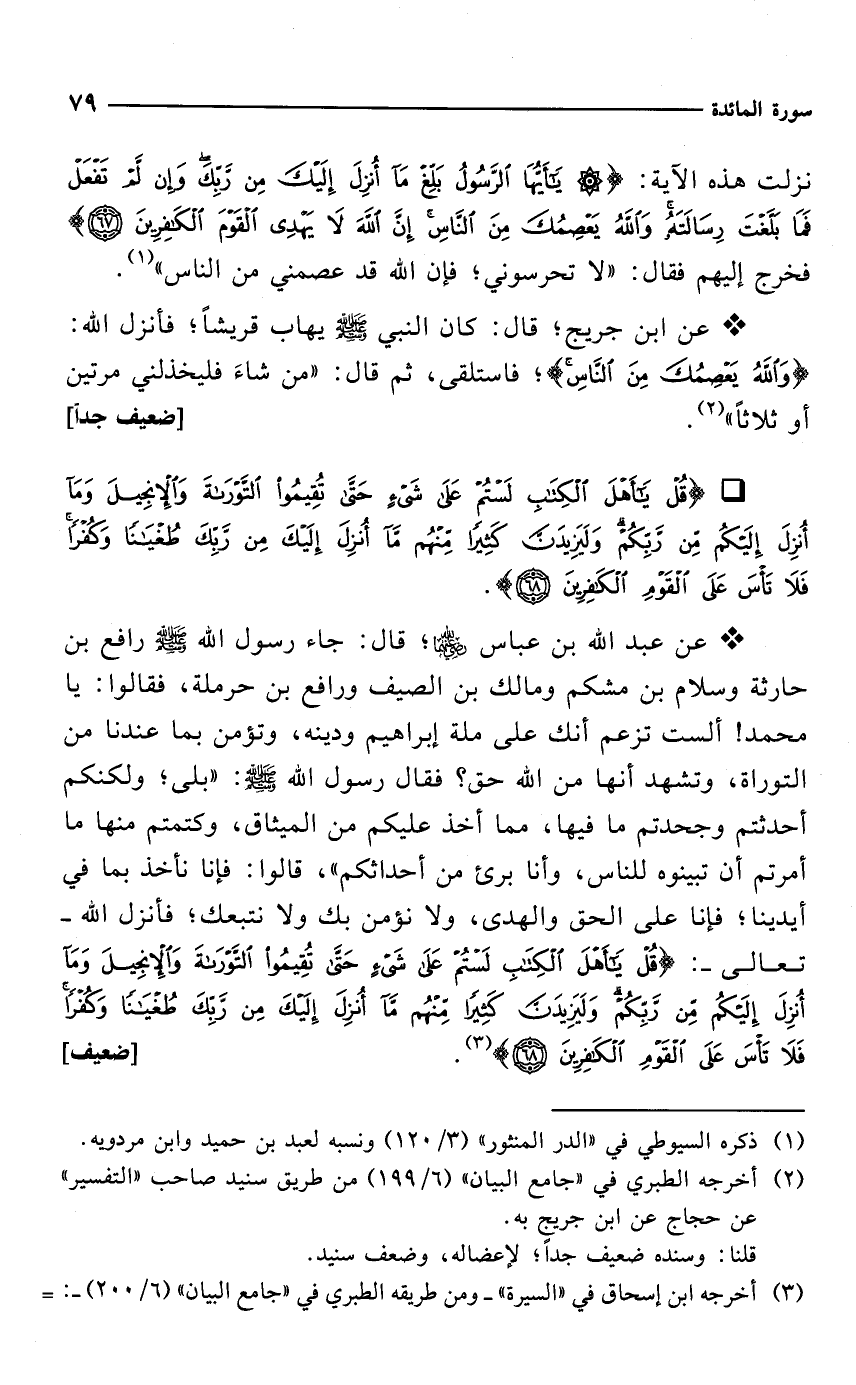 سورة المائدة ٧٩
نزلت هذه الآية: ﴿۞ يَٰٓأَيُّهَا ٱلرَّسُولُ بَلِّغۡ مَآ أُنزِلَ إِلَيۡكَ مِن رَّبِّكَۖ وَإِن لَّمۡ تَفۡعَلۡ
فَمَا بَلَّغۡتَ رِسَالَتَهُۥۚ وَٱللَّهُ يَعۡصِمُكَ مِنَ ٱلنَّاسِۗ إِنَّ ٱللَّهَ لَا يَهۡدِي ٱلۡقَوۡمَ ٱلۡكَٰفِرِينَ ٦٧﴾
فخرج إليهم فقال: «لا تحرسوني؛ فإن الله قد عصمني من الناس»(١).
❖ عن ابن جريج؛ قال: كان النبي ﷺ يهاب قريشاً؛ فأنزل الله:
﴿وَٱللَّهُ يَعۡصِمُكَ مِنَ ٱلنَّاسِۗ﴾؛ فاستلقى، ثم قال: «من شاءَ فليخذلني مرتين
أو ثلاثاً»(٢). [ضعيف جداً]
❑ ﴿قُلۡ يَٰٓأَهۡلَ ٱلۡكِتَٰبِ لَسۡتُمۡ عَلَىٰ شَيۡءٍ حَتَّىٰ تُقِيمُواْ ٱلتَّوۡرَىٰةَ وَٱلۡإِنجِيلَ وَمَآ
أُنزِلَ إِلَيۡكُم مِّن رَّبِّكُمۡۗ وَلَيَزِيدَنَّ كَثِيرٗا مِّنۡهُم مَّآ أُنزِلَ إِلَيۡكَ مِن رَّبِّكَ طُغۡيَٰنٗا وَكُفۡرٗاۖ
فَلَا تَأۡسَ عَلَى ٱلۡقَوۡمِ ٱلۡكَٰفِرِينَ ٦٨﴾.
❖ عن عبد الله بن عباس رضي الله عنهما؛ قال: جاء رسول الله ﷺ رافع بن
حارثة وسلام بن مشكم ومالك بن الصيف ورافع بن حرملة، فقالوا: يا
محمد! ألست تزعم أنك على ملة إبراهيم ودينه، وتؤمن بما عندنا من
التوراة، وتشهد أنها من الله حق؟ فقال رسول الله ﷺ: «بلى؛ ولكنكم
أحدثتم وجحدتم ما فيها، مما أخذ عليكم من الميثاق، وكتمتم منها ما
أمرتم أن تبينوه للناس، وأنا برئ من أحداثكم»، قالوا: فإنا نأخذ بما في
أيدينا؛ فإنا على الحق والهدى، ولا نؤمن بك ولا نتبعك؛ فأنزل الله ـ
تعالى ـ: ﴿قُلۡ يَٰٓأَهۡلَ ٱلۡكِتَٰبِ لَسۡتُمۡ عَلَىٰ شَيۡءٍ حَتَّىٰ تُقِيمُواْ ٱلتَّوۡرَىٰةَ وَٱلۡإِنجِيلَ وَمَآ
أُنزِلَ إِلَيۡكُم مِّن رَّبِّكُمۡۗ وَلَيَزِيدَنَّ كَثِيرٗا مِّنۡهُم مَّآ أُنزِلَ إِلَيۡكَ مِن رَّبِّكَ طُغۡيَٰنٗا وَكُفۡرٗاۖ
فَلَا تَأۡسَ عَلَى ٱلۡقَوۡمِ ٱلۡكَٰفِرِينَ ٦٨﴾(٣). [ضعيف]
(١) ذكره السيوطي في «الدر المنثور» (٣/ ١٢٠) ونسبه لعبد بن حميد وابن مردويه.
(٢) أخرجه الطبري في «جامع البيان» (٦/ ١٩٩) من طريق سنيد صاحب «التفسير»
عن حجاج عن ابن جريج به.
قلنا: وسنده ضعيف جداً؛ لإعضاله، وضعف سنيد.
(٣) أخرجه ابن إسحاق في «السيرة» ـ ومن طريقه الطبري في «جامع البيان» (٦/ ٢٠٠) ـ: =